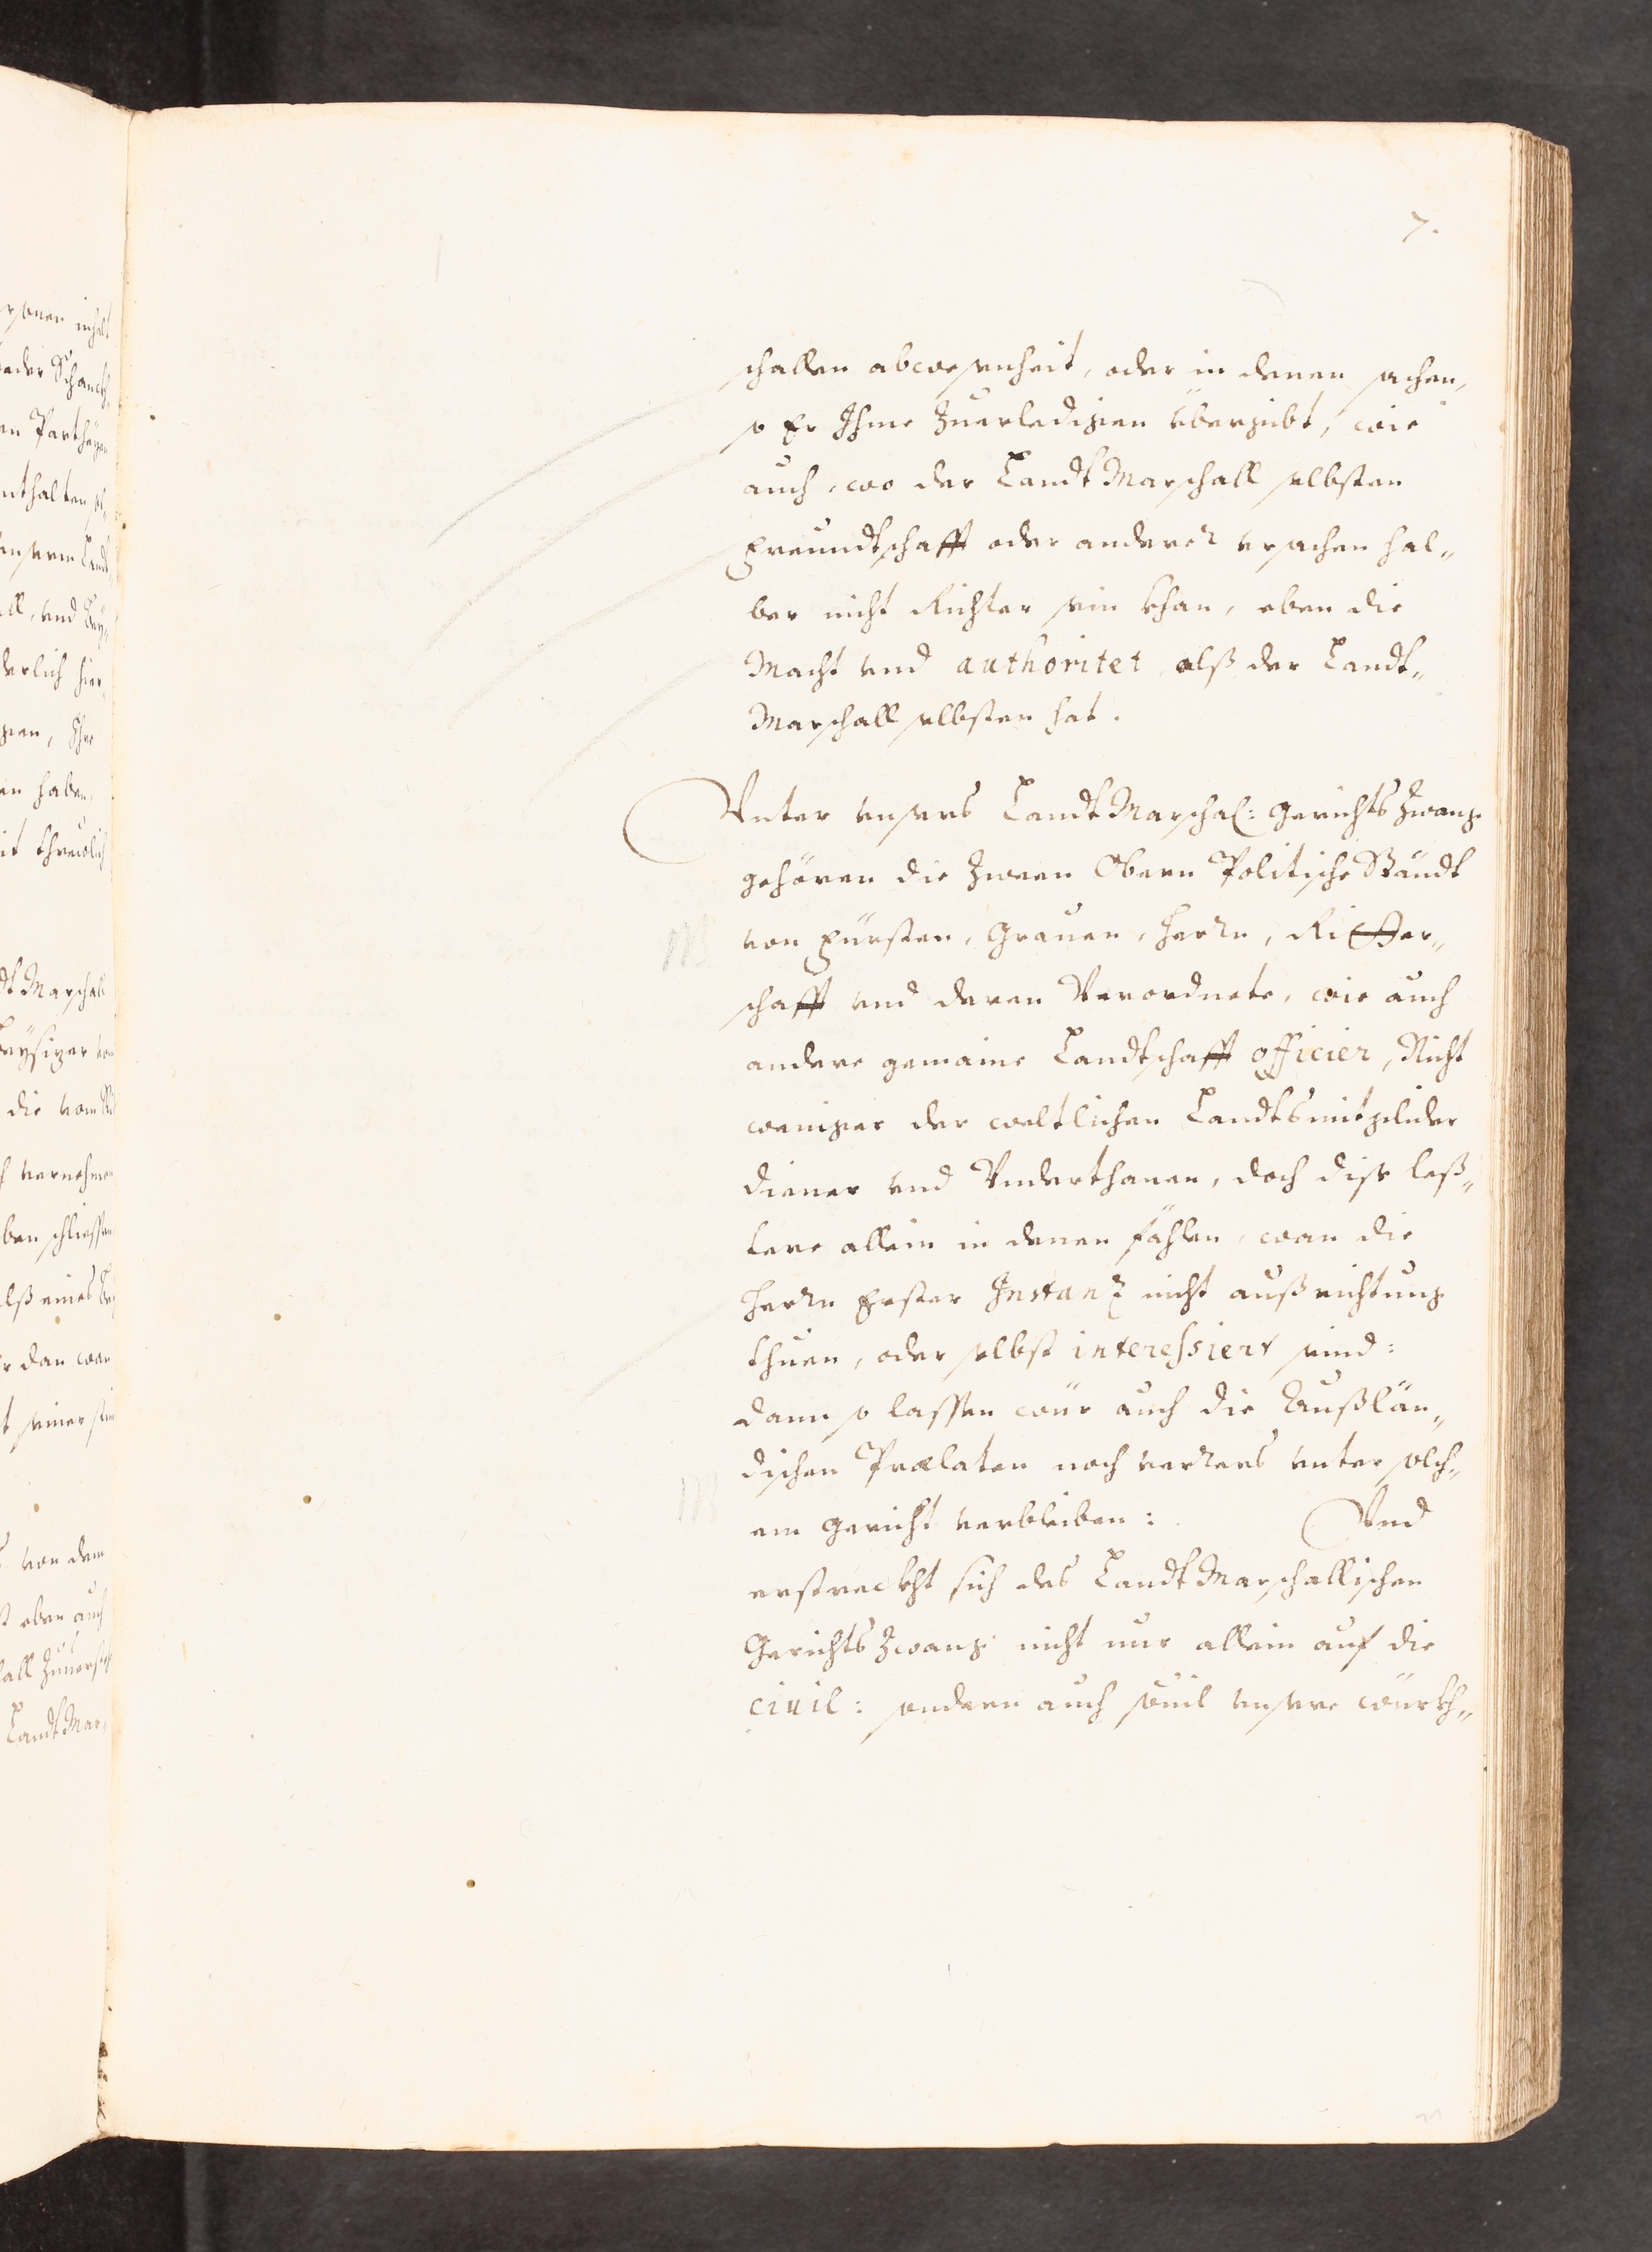 7.
schallen abwesenheit, oder in denen sachen,
so Er Ihme Zuerledigen übergibt, wie
auch, wo der Landt Marschall selbsten
Freundtschafft oder anderer vrsachen hal„
ber nicht Richter sein khan, eben die
Macht vnd authoritet alß der Landt„
Marschall selbsten hat.
Vnter vnsers Landt Marschal: gerichts Zwang
gehören die Zween Obern Politische Ständt
von Fürsten, Grauen, Herrn, Ritter„
schafft vnd deren Verordnete, wie auch
andere gemaine Landtschafft officier, Nicht
weniger der weltlichen Landtsmitglider
diener vnd Vnderthanen, doch dise leß„
tere allein in denen fählen, wan die
Herrn Erster Instanz nicht außrichtung
thuen, oder selbst interessiert seind:
dann so lassen wür auch die Außlän„
dischen Prælaten noch verrers vnter solch„
em gericht verbleiben: Vnd
erstreckht sich des Landt Marschallischen
Gerichts Zwang nicht nur allein auf die
ciuil: sondern auch souil vnsere würkh„